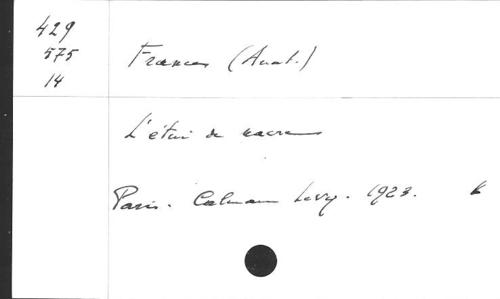 429
575
14
France (Anat.)
L'étui de nacre
Paris. Calmann Levy. 1923.